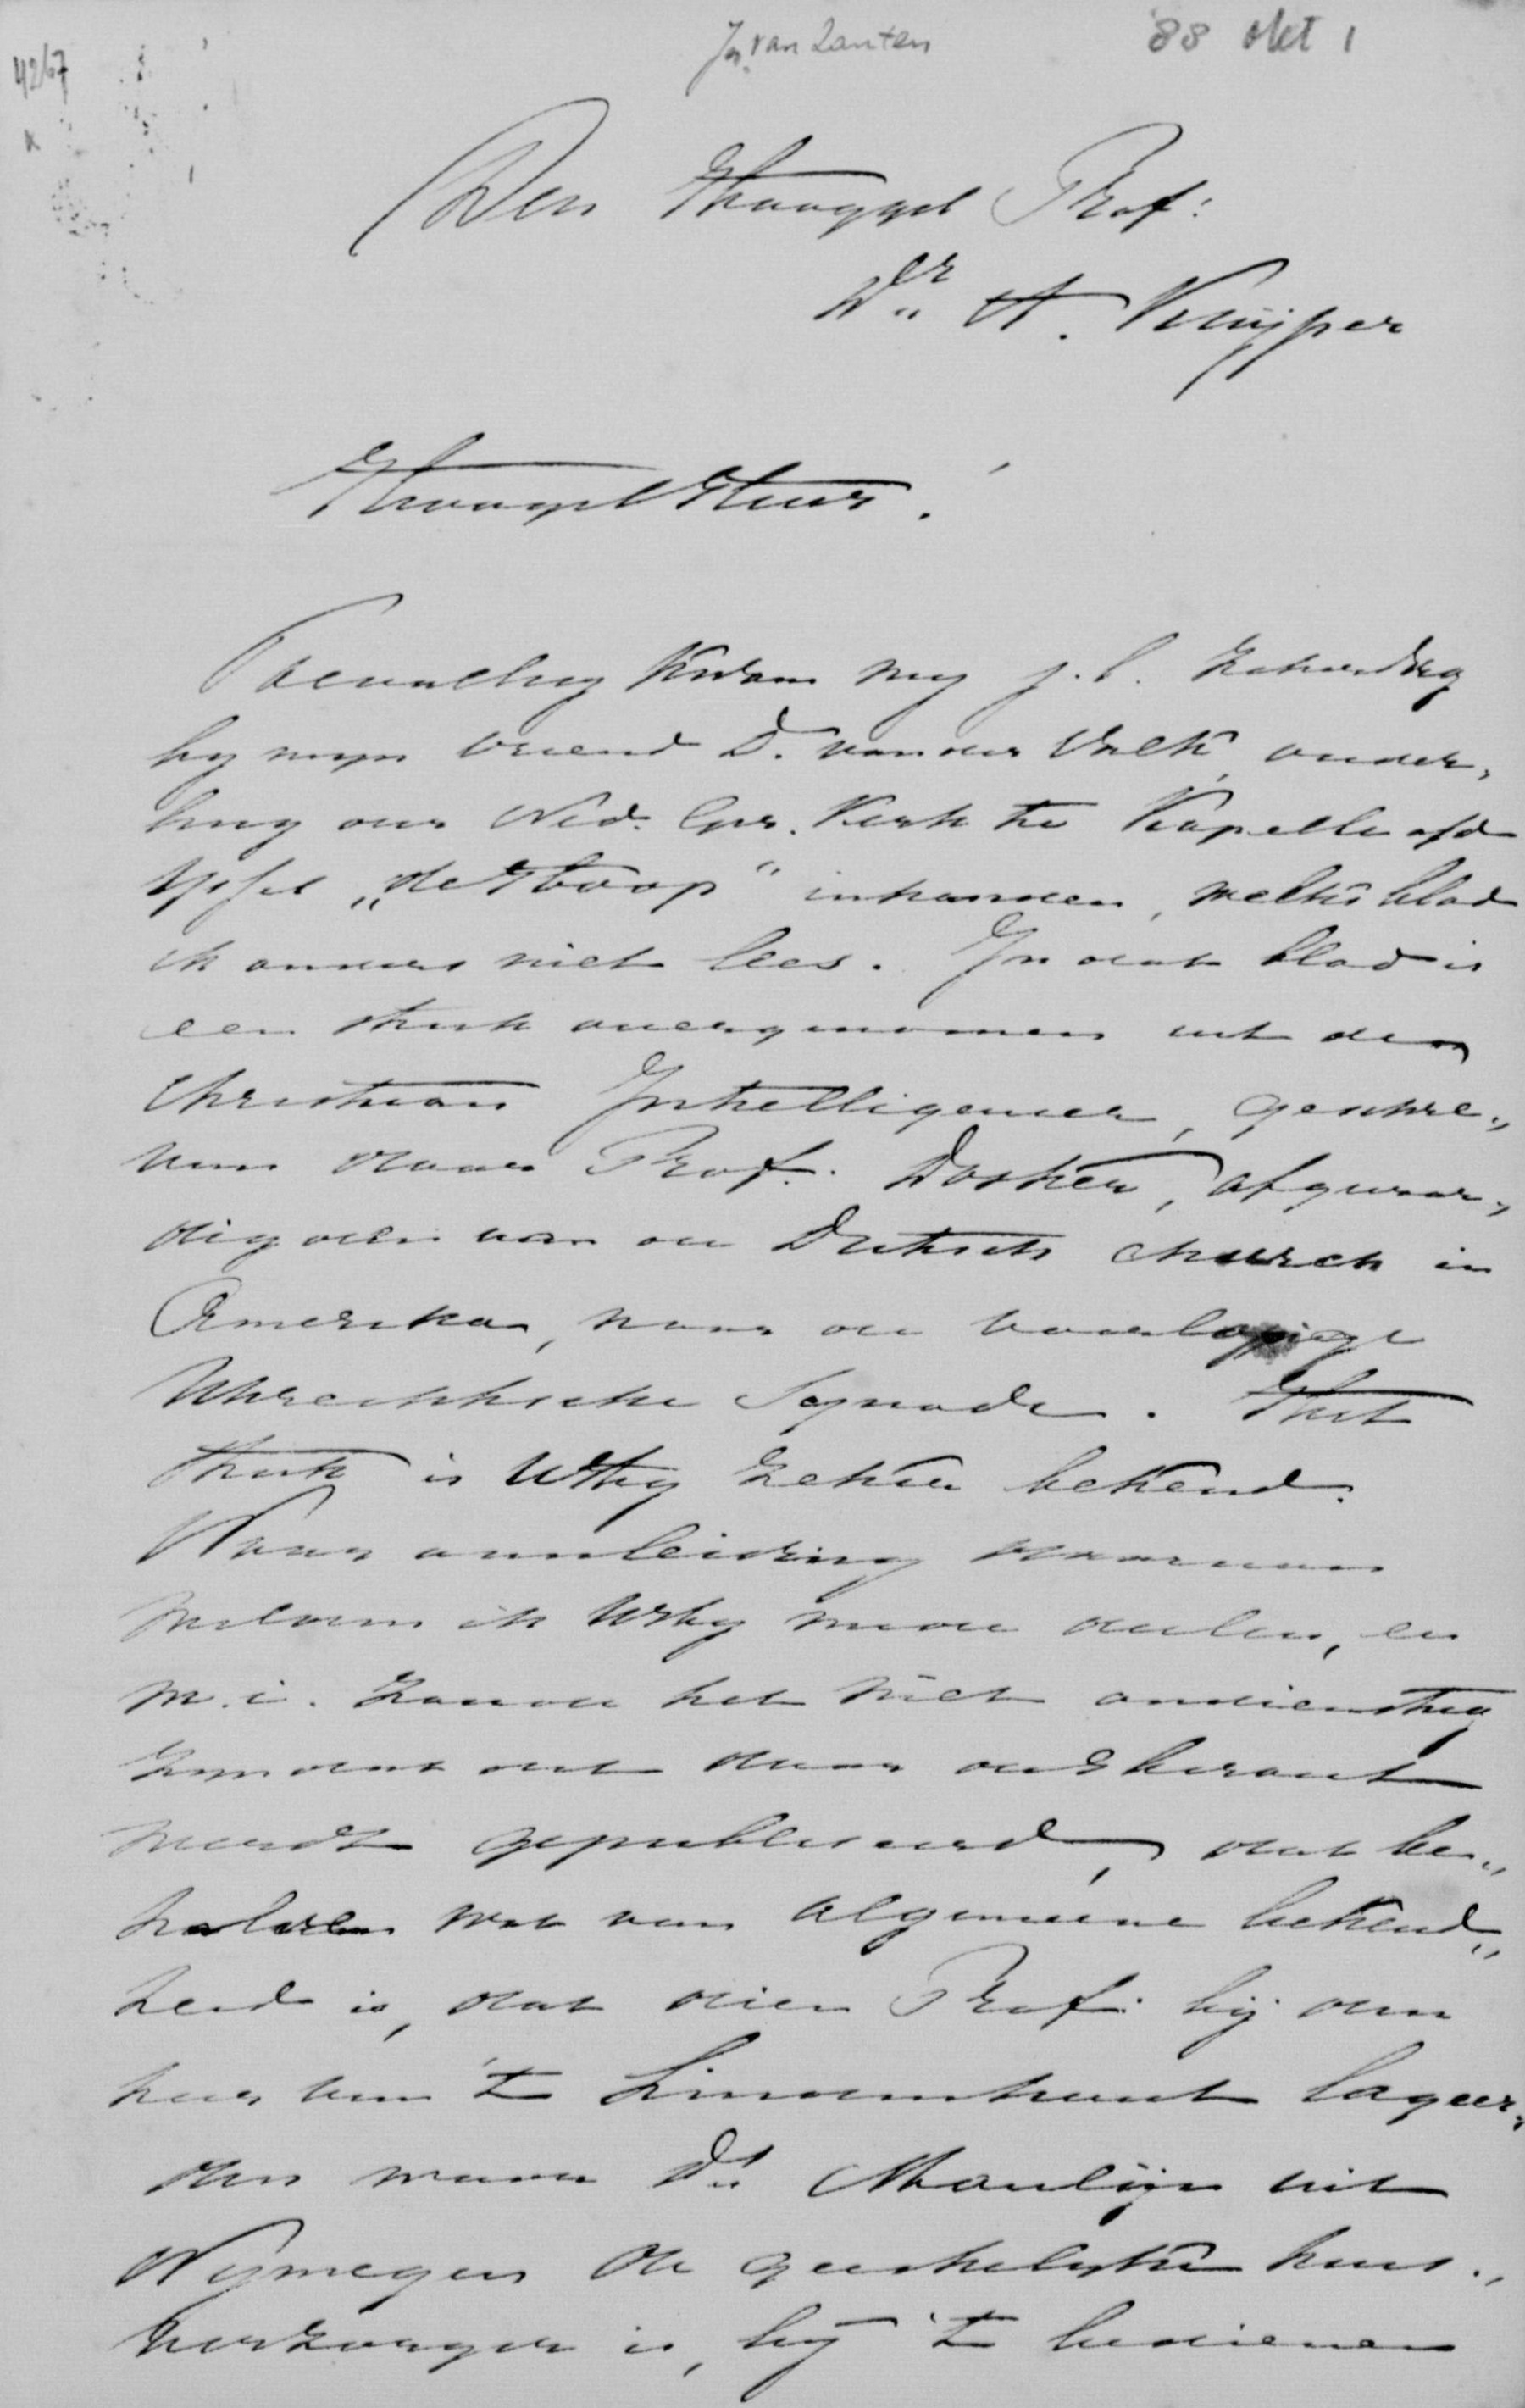 Js. van Zanten 88 okt 1
4267
x
Den Hooggel Prof:
Dr A. Kuijper
Hooggel Heer!
Toevallig kwam my j.l. Zaterdag
by myn vriend D. van der Valk, ouder„
ling der Ned. Ger. Kerk te Kapelle a/d
Yssel „de Hoop" in handen, welk blad
ik anders niet lees. In dat blad is
een stuk overgenomen uit den
Christian Intelligencer, geschre„
ven door Prof. Dosker, afgevaar„
digden van de Dutch church in
Amerika, naar de voorlopige
Utrechtsche Synode. Het
stuk is UHg zeker bekend.
Naar aanleiding daarvan
wilde ik UHg mede deelen, en
m.i. zoude het niet ondienstig
zyn dat dit door
wordt gepubliceerd, dat be„
halve wat van algemeene bekend„
heid is, dat dien Prof. bij den
heer van 't Lindenhout logeer„
den waar Ds Moulijn uit
Nymegen de geestelyke huis„
verzorger is, bij 't bedienen